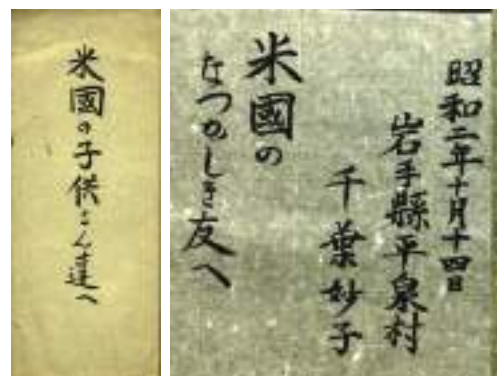 米國の子供さん達へ
昭和二年十月十四日
岩手縣平泉村
千葉妙子
米國の
なつかしき友へ